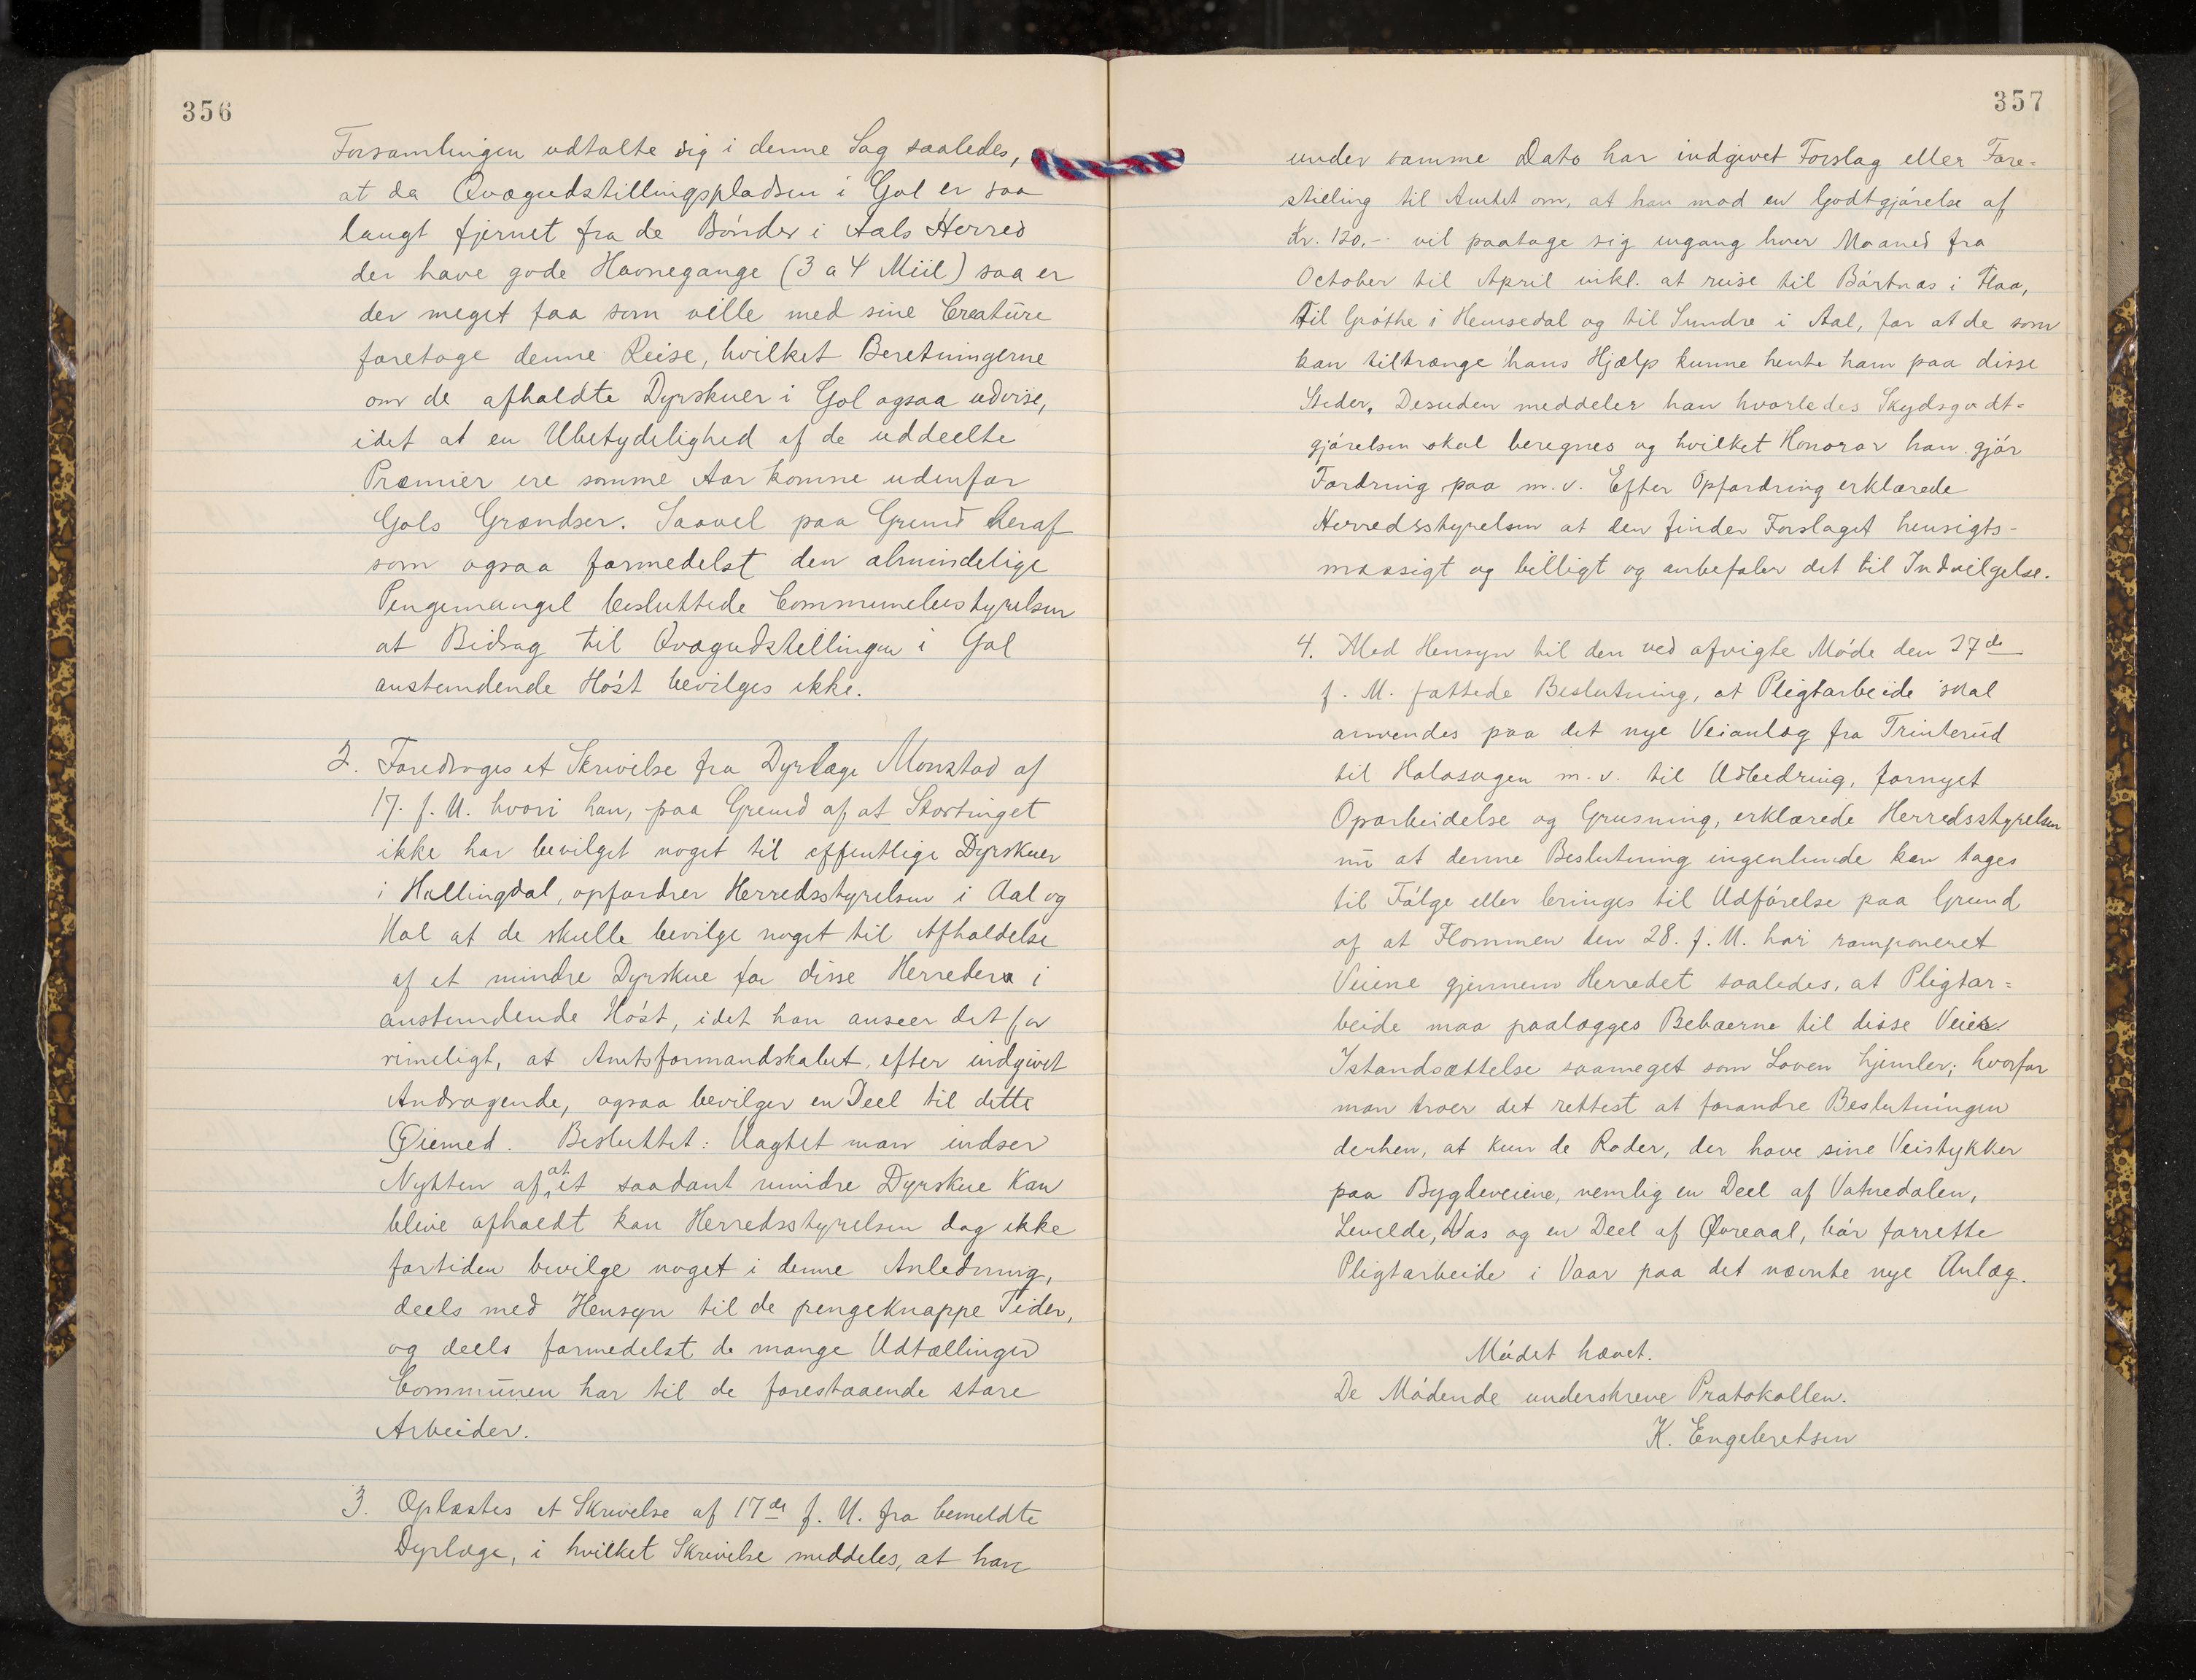 356
Forsamlingen udtalte sig i denne Sag saaledes,
at da Qvægudstillingspladsen i Gol er saa
langt fjernet fra de Bønder i Aals Herred
der have gode Havnegange (3 a 4 Miil) saa er
der meget faa som ville med sine Creature
foretage denne Reise, hvilket Beretningerne
om de afholdte Dyrskuer i Gol ogsaa udvise,
idet at en Ubetydelighed af de uddeelte
Præmier ere somme Aar komne udenfor
Gols Grændser. Saavel paa Grund heraf
som ogsaa formedelst den almindelige
Pengemangel besluttede Communebestyrelsen
at Bidrag til Qvægudstillingen i Gol
anstundende Høst bevilges ikke.
2. Foredroges et Skrivelse fra Dyrlæge Monstad af
17. f. M. hvori han, paa Grund af at Stortinget
ikke har bevilget noget til offentlige Dyrskuer
i Hallingdal, opfordrer Herredsstyrelsen i Aal og
Hol at de skulle bevilge noget til Afholdelse
af et mindre Dyrskue for disse Herreder i
anstundende Høst, idet han anseer det for
rimeligt, at Amtsformandskabet, efter indgivet
Andragende, ogsaa bevilger en Deel til dette
Øiemed. Besluttet: Uagtet man indser
Nytten af, at et saadant mindre Dyrskue kan
blive afholdt kan Herredsstyrelsen dog ikke
fortiden bevilge noget i denne Anledning,
deels med Hensyn til de pengeknappe Tider,
og deels formedelst de mange Udtællinger
Communen har til de forestaaende store
Arbeider.
3. Oplæstes et Skrivelse af 17de f. M. fra bemeldte
Dyrlæge, i hvilket Skrivelse meddeles, at han
357
under samme Dato har indgivet Forslag eller Fore=
stilling til Amtet om, at han mod en Godtgjørelse af
Kr. 120,-- vil paatage sig engang hver Maaned fra
October til April inkl. at reise til Bortnæs i Flaa,
til Grøthe i Hemsedal og til Sundre i Aal, for at de som
kan tiltrænge hans Hjælp kunne hente ham paa disse
Steder. Desuden meddeler han hvorledes Skydsgodt=
gjørelsen skal beregnes og hvilket Honorar han gjør
Fordring paa m.v. Efter Opfordring erklærede
Herredsstyrelsen at den finder Forslaget hensigts-
mæssigt og billigt og anbefaler det til Indvilgelse.
4. Med Hensyn til den ved afvigte Møde den 27de
f. M. fattede Beslutning, at Pligtarbeide skal
anvendes paa det nye Veianlæg fra Trinterud
til Holosagen m.v. til Udbedring, fornyet
Oparbeidelse og Grusning, erklærede Herredsstyrelsen
nu at denne Beslutning ingenlunde kan tages
til Følge eller bringes til Udførelse paa Grund
af at Flommen den 28. f. M. har ramponeret
Veiene gjennem Herredet saaledes, at Pligtar=
beide maa paalægges Beboerne til disse Veies
Istandsættelse saameget som Loven hjemler; hvorfor
man troer det rettest at forandre Beslutningen
derhen, at kun de Roder, der have sine Veistykker
paa Bygdeveiene, nemlig en Deel af Vatnedalen,
Levelde, Næs og en Deel af Øvreaal, bør forrette
Pligtarbeide i Vaar paa det nævnte nye Anlæg.
Mødet hævet.
De Mødende underskreve Protokollen.
K. Engebretsen